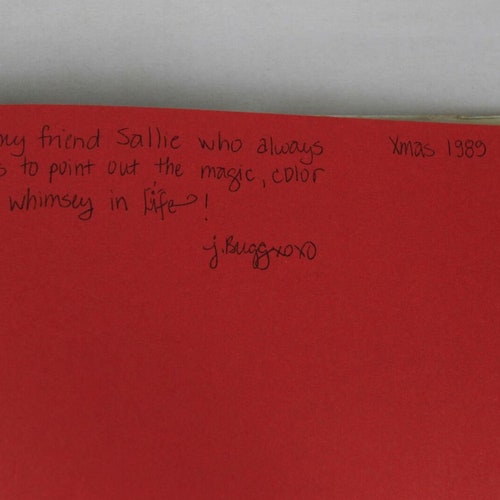 my friend Sallie who always
Xmas 1989
s to point out the magic, color
whimsey in Life!
j.Buggxoxo